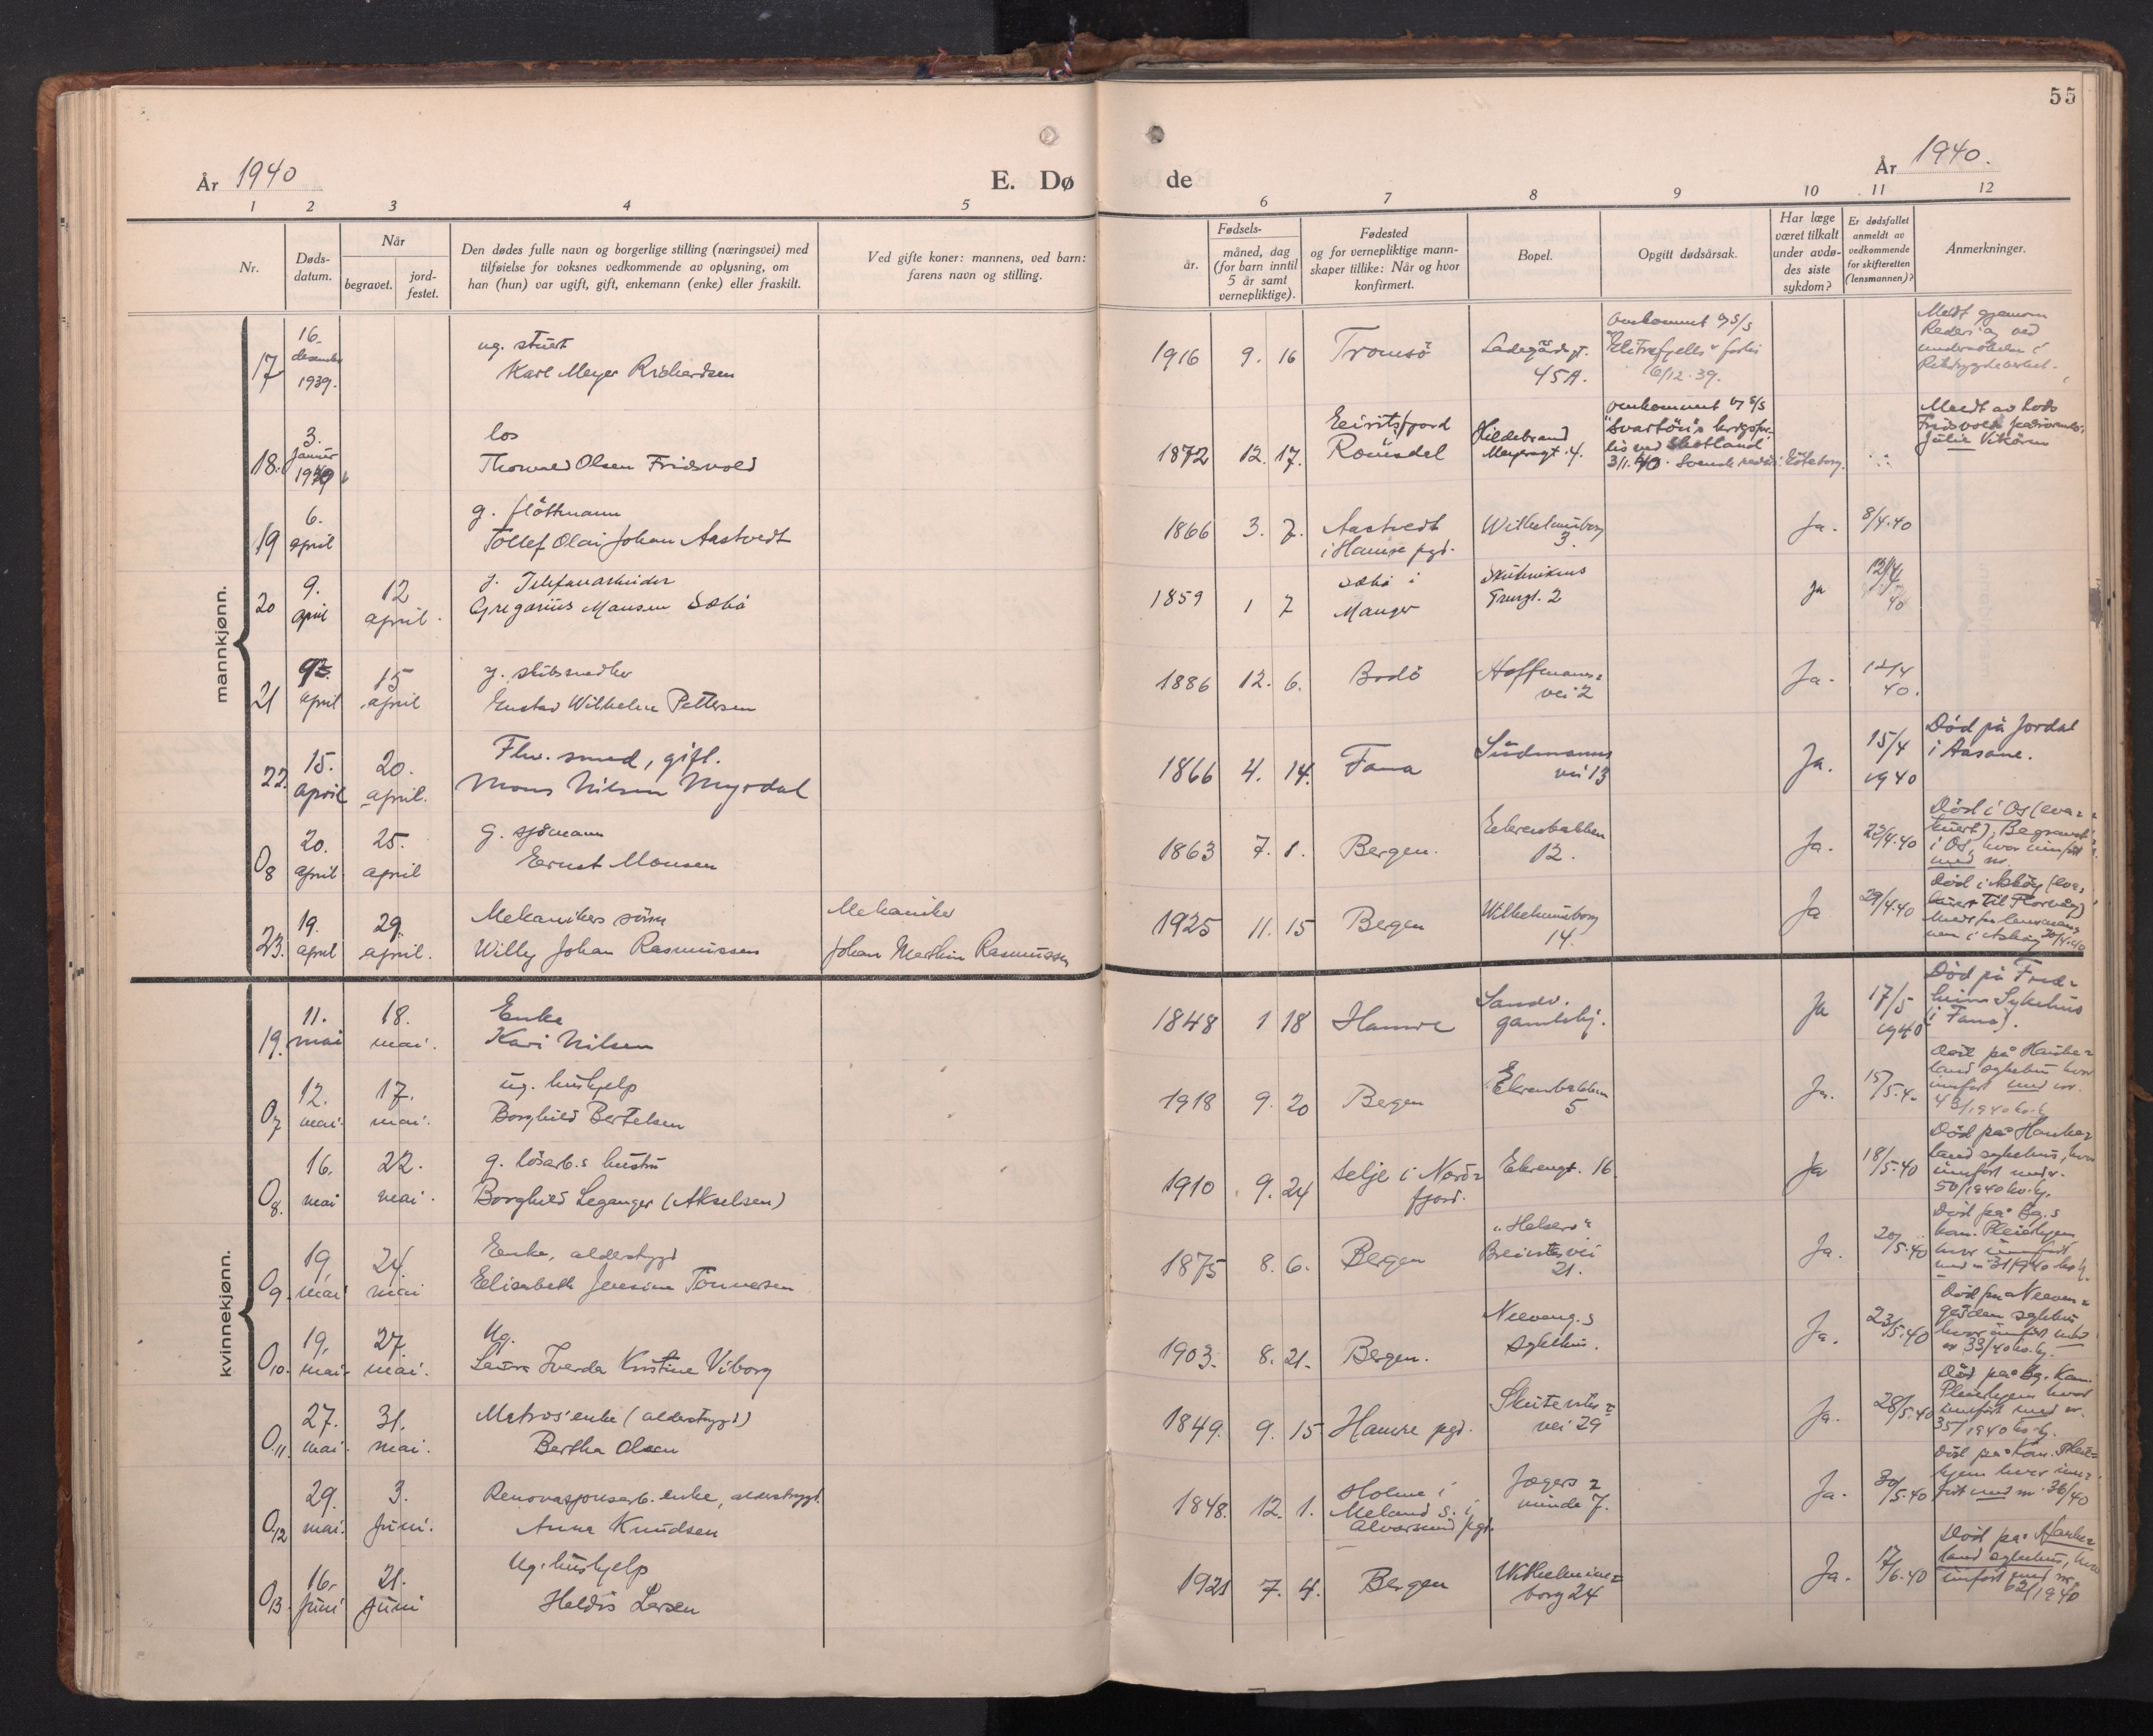 55
År 1940
E. Dø
de
År 1940.
1 2 3 4 5
6 7 8 9 10 11 12
Nr.
Døds-
datum.
Når
begravet.
jord-
festet.
Den dødes fulle navn og borgerlige stilling (næringsvei) med
tilføielse for voksnes vedkommende av oplysning, om
han (hun) var ugift, gift, enkemann (enke) eller fraskilt.
Ved gifte koner: mannens, ved barn:
farens navn og stilling.
Fødsels-
år.
måned, dag
(for barn inntil
5 år samt
vernepliktige).
Fødested
og for vernepliktige mann-
skaper tillike: Når og hvor
konfirmert.
Bopel.
Opgitt dødsårsak.
Har læge
været tilkalt
under avdø-
des siste
sykdom?
Er dødsfallet
anmeldt av
vedkommende
for skifteretten
(lensmannen)?
Anmerkninger.
mannkjønn.
17
16.
desember
1939.
ug. stuert
Karl Meyer Richardsen
1916 9. 16
Tromsö
Ladegårdsgt.
45A.
omkommet
16/12.39.
Meldt gjennom
18.
3.
januar
1940
los
Thorvald Olsen Fridsvold
1872 12. 17.
Eiritsfjord
Romsdal
Hildebrand
Meyersgt. 4.
omkommet
3/1.40.
Meldt av
19
6.
april
g. fløttmann
Tollef Olai Johan Aastvedt
1866 3. 7.
Aastvedt
i Hamre pgd.
Wilhelmsborg
3.
Ja.
8/4.40
20
9.
april
12
april.
g. Telefonarbeider
Gregorius Mansen Sæbö
1859 1 7
Sæbö i
Manger
Skuteviks
Trangt. 2
Ja
12/4
40
21
april
15
april
g.
Gustav Wilhelm Pettersen
1886 12. 6.
Bodö
Hoffmanns=
vei 2
Ja.
12/4
40.
22.
15.
april
20.
april.
Fhv. smed, gift.
Mons Nilsen Myrdal
1866 4. 14.
Fana
vei 13
Ja.
15/4
1940
Död på Jordal
i Aasane.
08
20.
april
25.
april
g. sjömann
Ernst Monsen
1863 7. 1.
Bergen.
Ekrenbakken
12.
Ja.
22/4.40
Död i Os (eva=
kuert), Begravet
i Os, hvor innfört
med nr.
23.
19.
april
29.
april.
Mekanikers sönn
Willy Johan Rasmussen
Mekaniker
Johan Martin Rasmussen
1925 11. 15
Bergen
Wilhelminborg
14.
Ja
29/4.40
Död i Asköy
kvinnekjønn.
19.
11.
mai
18.
mai.
Enke
Kari Nilsen
1848 1 18
Hamre
Sandv.
gamlehj.
Ja
17/5
1940
Död på Fred=
heim Sykehus
i Fana.
07
12.
mai.
17.
mai.
ug. hushjelp
Borghild Bertelsen
1918 9. 20
Bergen
Ekrenbakken
5
Ja.
15/5.4
Död på Hauke=
land sykehus hvor
innfört med nr.
43/1940
08.
16.
mai
22.
mai.
g. lösarb.s hustru
Borghild Leganger (Akselsen)
1910 9. 24
Selje i Nord=
fjord.
Ekrengt. 16.
Ja
18/5.40
Död på Hauke=
land sykehus, hvor
innfört med nr.
50/1940 kv.kj.
09.
19.
mai
24.
mai
Enke, alderstrygd
Elisabeth Jensine Tönnesen
1875 8. 6.
Bergen
21.
Ja.
20/5.40
Död på Bg.s
kom. Pleiehjem
hvor innfört
med nr 31/1940 kv.kj.
010.
19.
mai.
27.
mai.
Ug.
Laura Iverda Kristine Viborg
1903. 8. 21.
Bergen.
Neeveng.s
sykehus.
Ja.
23/5.40
Död på Neeven=
gården sykehus
hvor innfört med
nr 33/40 kv.kj.
011.
27.
mai.
31.
mai.
Matros'enke (alderstrygd)
Bertha Olsen
1849. 9. 15
Hamre pgd.
Skuteviks=
vei 29
Ja.
28/5.40
Död på Bg. Kom.
Pleiehjem hvor
innfört med nr.
35/1940 kv.kj.
012
29.
mai.
3.
Juni.
Renovasjonsarb. enke, alderstrygd.
Anna Knudsen
1848. 12. 1.
Holme i
Meland s. i
Alversund pgd.
Jægers=
minde 7.
Ja.
30/5.40
Död på Kom. Pleie=
hjem hvor inn=
fört med nr. 36/40
013.
16.
Juni
21.
Juni
Ug. hushjelp
Haldis Larsen
1921 7. 4.
Bergen
Wilhelmine=
borg 24
Ja.
17/6.40
Död på Hauke
land sykehus, hvor
innfört med nr.
62/1940